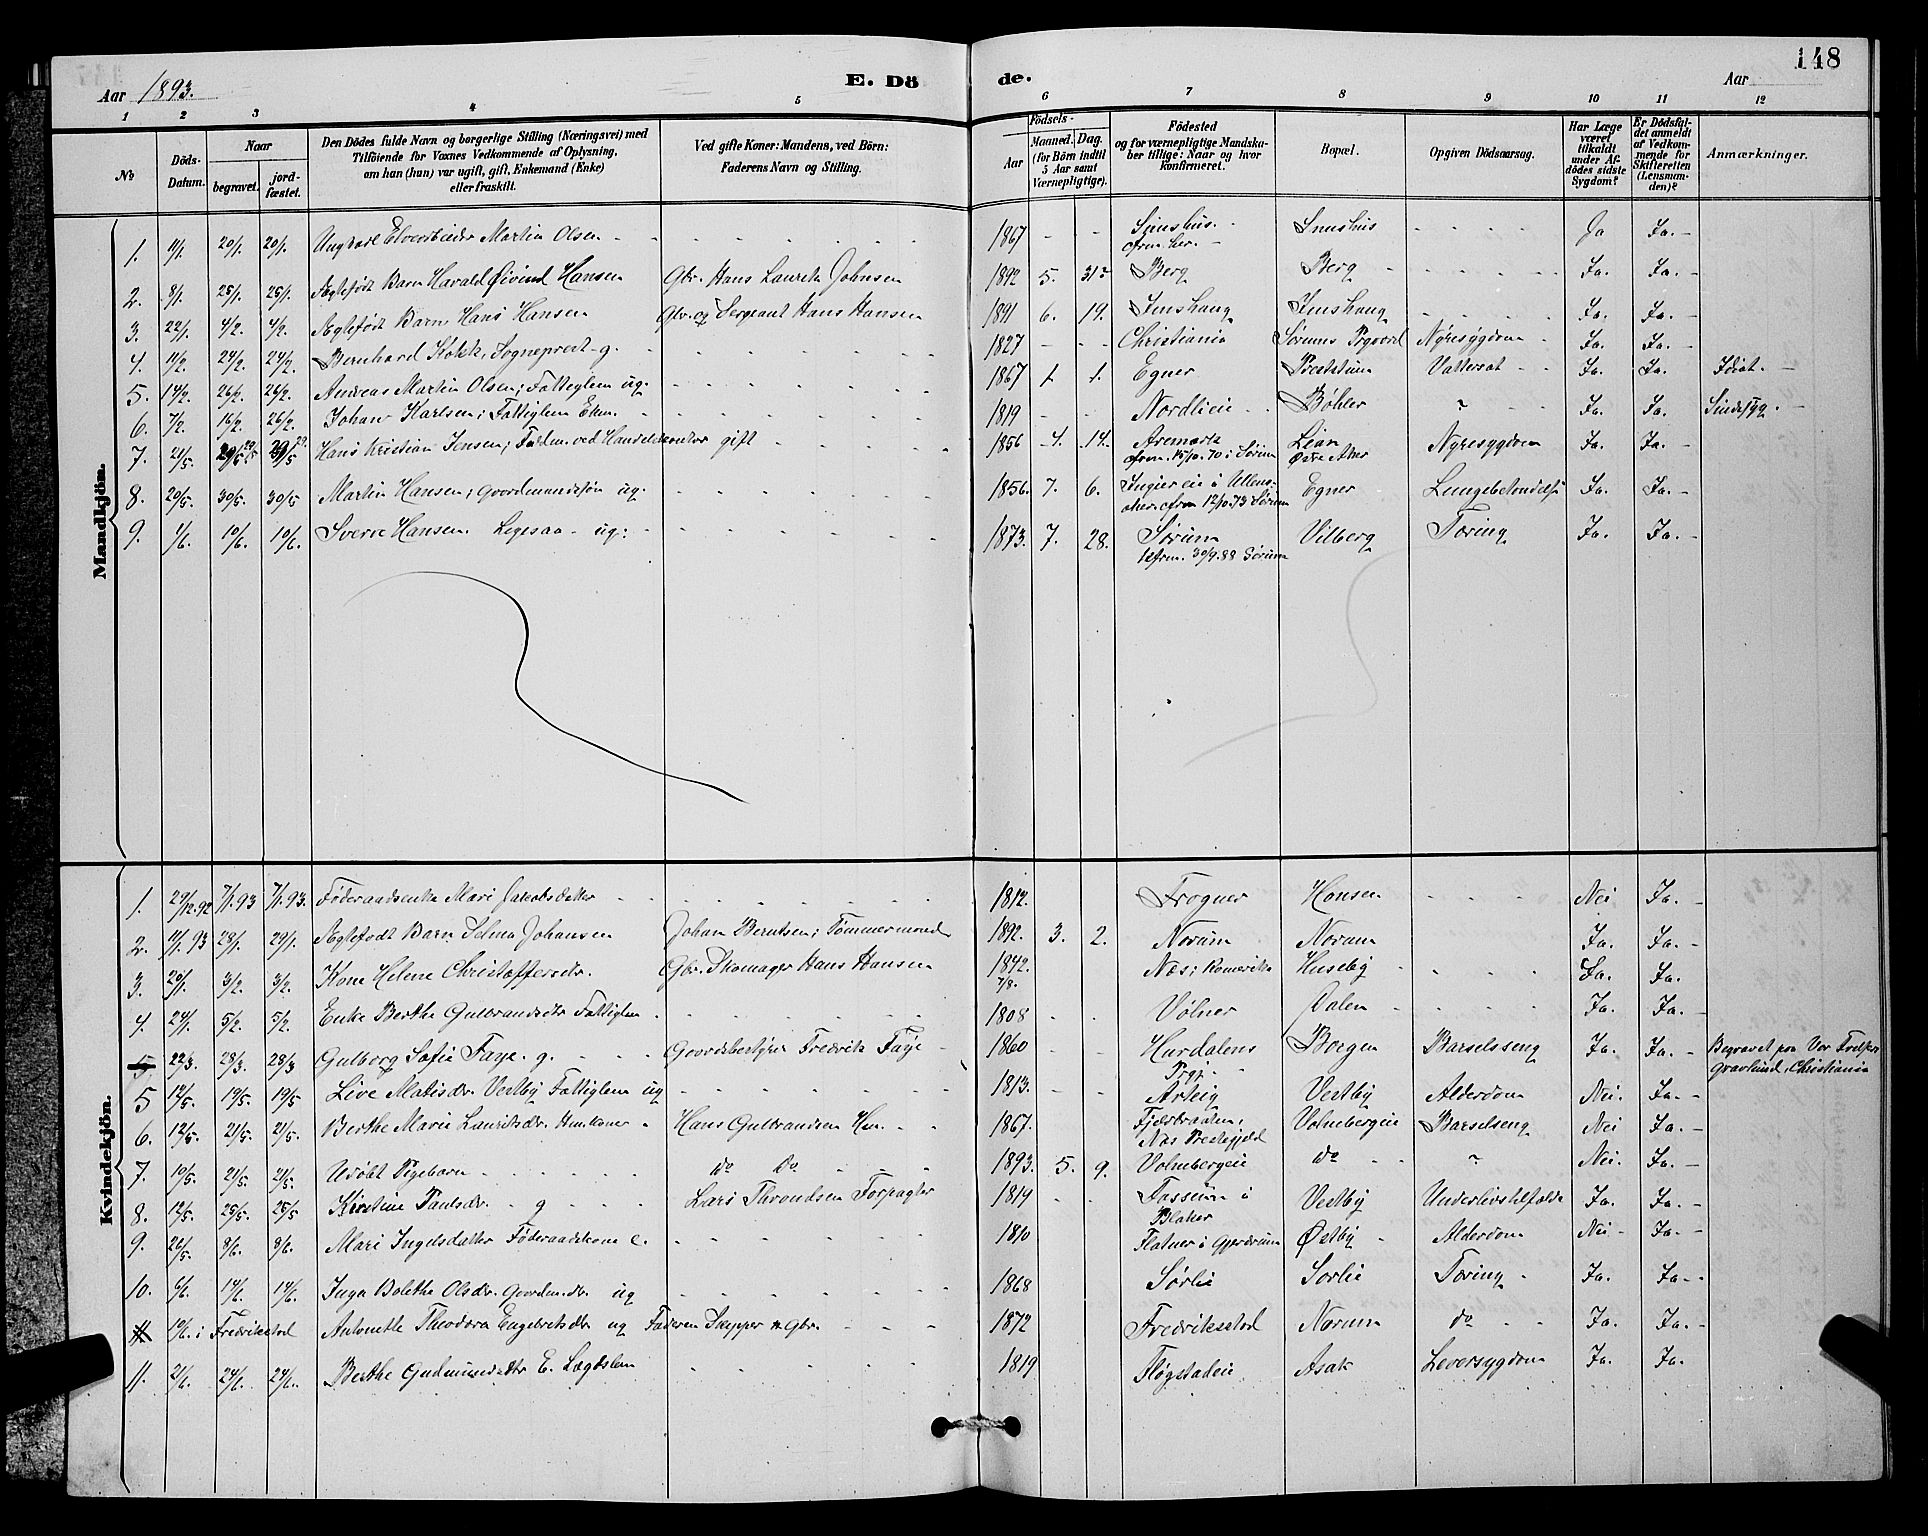 148
Aar 1893.
E. Dö de.
Aar
1 2 3 4 5 6 7 8 9 10 11 12
№
Döds-Datum.
Naar begravet. jord-fæstet.
Den Dödes fulde Navn og borgerlige Stilling (Næringsvei) med
Tilföiende for Voxnes Vedkommende af Oplysning,
om han (hun) var ugift, gift, Enkemand (Enke)
eller fraskilt.
Ved gifte Koner: Mandens, ved Börn:
Faderens Navn og Stilling.
Födsels-
Aar Maaned. Dag.
(for Börn indtil
5 Aar samt
Værnepligtige).
Födested
og for værnepligtige Mandska-
ber tillige: Naar og hvor
konfirmeret.
Bopæl.
Opgiven Dödsaarsag.
Har Læge
været
tilkaldt
under Af-
dödes sidste
Sygdom?
Er Dödsfal-
det anmeldt
af Vedkom-
mende for
Skifteretten
(Lensman-
den)?
Anmærkninger.
Mandkjön.
1. 11/1. 20/1. 20/1. Ungkarl Martin Olsen 1867 cfrm. her. Ja Ja.
2. 8/1. 25/1. 25/1. Ægtefødt Barn Harald Øivind Hansen Gbr. Hans Lauritz Johnsen 1892 5. 31 Berg Berg Ja. Ja.
3. 22/1. 4/2. 4/2. Ægtefødt Barn Hans Hansen Gbr. og Sergeant Hans Hansen 1891 6. 19. Imshaug Imshaug Ja. Ja.
4. 11/2. 24/2. 24/2. Bernhard Sogneprest g. 1827 Christiania Sørums Prgaard Nyresygdom Ja. Ja.
5. 14/2. 26/2. 26/2. Andreas Martin Olsen; Fattiglem ug. 1867 1. 1. Egner Vattersot Ja. Ja. Idiot.
6. 7/2. 16/2. 26/2. Johan Karlsen; Fattiglem Ekm. 1819 Nordlieie Bøhler " Ja. Ja. Sindssyg.
7. 21/5. 29/5 29/5 Hans Kristian Jensen; gift 1856 4. 14. Aremark cfrm. 15/10. 70 i Sørum Lian Østre Aker Nyresygdom Ja. Ja.
8. 20/5. 30/5. 30/5 Martin Hansen; Gaardmandssøn ug. 1856. 7. 6. Ingiereie i Ullens-
aker. cfrm 12/10. 73 Sørum Egner Lungebetændelse Ja. Ja.
9. 4/6. 10/6. 10/6. Sverre Hansen ug. 1873. 7. 28. Sørum
cfrm. 30/9. 88 Sørum Vilberg Tæring Ja. Ja.
Kvindekjön.
1. 29/12. 92 7/1. 93 7/1. 93. Føderaadsenke Mari Jacobsdatter 1812. Frogner Hansen Nei Ja.
2. 11/1. 93 28/1. 29/1. Ægtefødt Barn Selma Johansen Johan Berntsen; Tømmermand 1892. 3. 2. Norum Norum Ja. Ja.
3. 20/1. 3/2. 3/2. Kone Helene Christoffersdr. Gbr. Skomager Hans Hansen 1842. 7/8. Næs; Romerike Huseby Ja. Ja.
4. 24/1. 5/2. 5/2. Enke Berthe Gulbrandsdtr Fattiglem 1808 Vølner Dalen Ja. Ja.
5. 22/3. 28/3 28/3 Gulborg Sofie Faye. g. Gaardsbestyrer Fredrik Faye 1860 Hurdalens
Prgj. Borgen Barselsseng Ja. Ja. Begravet paa Vor Frelsers
Gravlund, Christiania
5 12/5. 19/5. 19/5 Live Matisdr. Vestby Fattiglem ug 1813. Asteig Vestby Alderdom Nei. Ja.
6. 12/5. 21/5. 21/5. Berthe Marie Lauritsdr. Hmkone Hans Gulbrandsen Hm. 1867.
Næs Prestegjeld Volmbergeie Barselseng Nei Ja.
7. 10/5. 21/5. 21/5. Udøbt Pigebarn do do 1893. 5. 9. Volmbergeie do " Nei. Ja.
8. 12/5. 25/5. 25/5 Kirstine Paulsdr. g Lars Throndsen Forpagter 1819 Fossum i
Blaker Vestby Underlivstilfælde Ja. Ja.
9. 26/5. 8/6. 8/6. Mari Ingelsdatter Føderaadskone e. 1810 Flatner i Gjerdrum Østby Alderdom Nei Ja.
10. 6/6. 14/6. 14/6. Inga Bolethe Olsdr. Gaardm.dr. ug 1868 Sørlie Sørlie Tæring Ja. Ja.
11 10/6. i Fredrikstad Antonette Theodora Engebretsdr ug Faderen Skipper &amp; Gbr. 1872 Fredriksstad Norum do Ja. Ja.
11. 21/6. 24/6. 24/6. Berthe Gudmundsdtr E. Lægdslem 1819 Fløgstadeie Asak Leversygdom Ja. Ja.